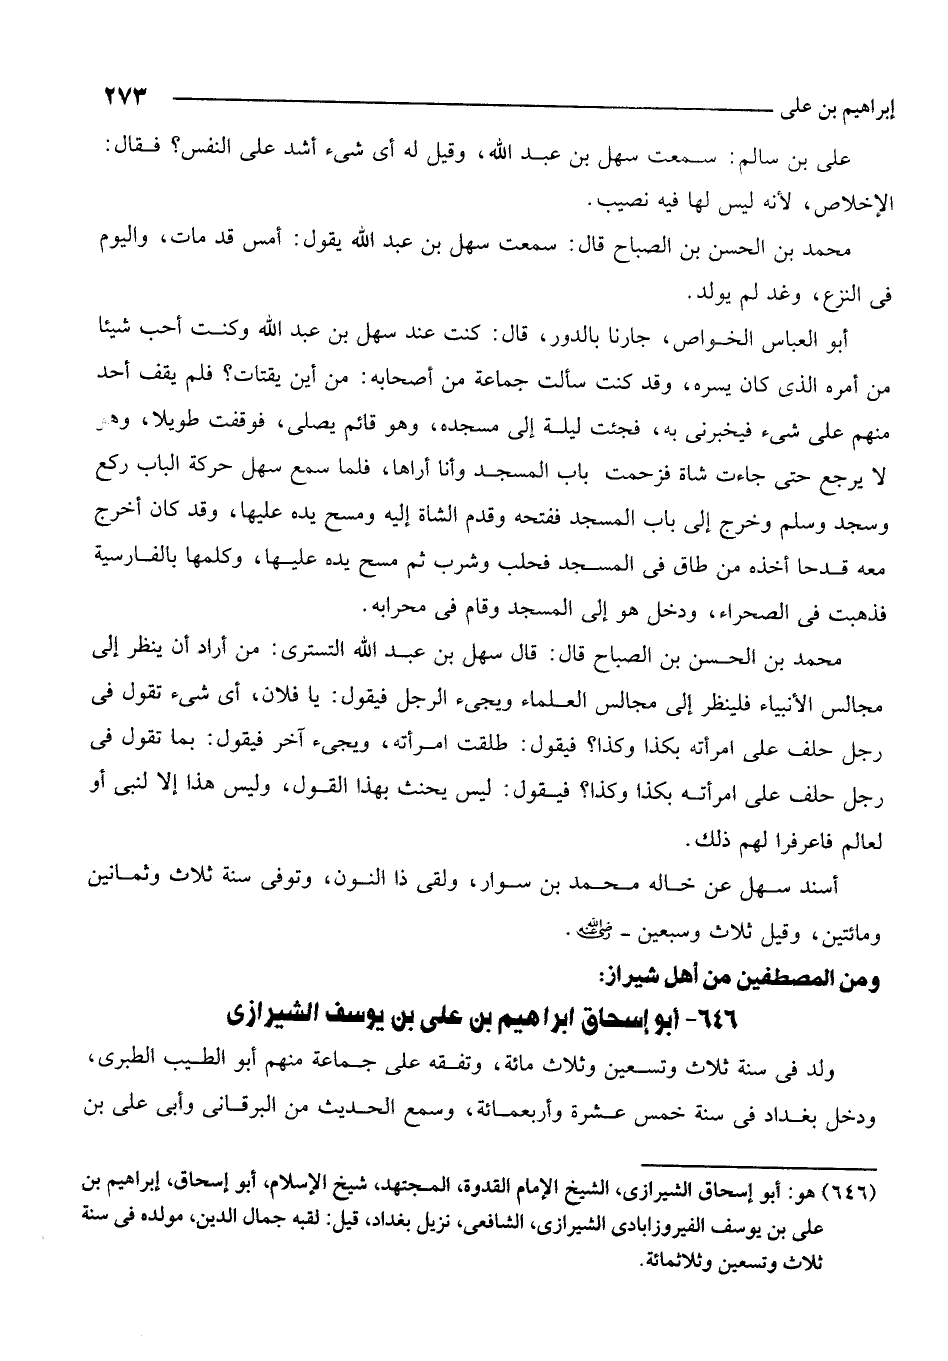 إبراهيم بن على ٢٧٣
على بن سالم: سمعت سهل بن عبد الله، وقيل له أى شىء أشد على النفس؟ فقال:
الإخلاص، لأنه ليس لها فيه نصيب.
محمد بن الحسن بن الصباح قال: سمعت سهل بن عبد الله يقول: أمس قد مات، واليوم
فى النزع، وغد لم يولد.
أبو العباس الخواص، جارنا بالدور، قال: كنت عند سهل بن عبد الله وكنت أحب شيئا
من أمره الذى كان يسره، وقد كنت سألت جماعة من أصحابه: من أين يقتات؟ فلم يقف أحد
منهم على شىء فيخبرنى به، فجئت ليلة إلى مسجده، وهو قائم يصلى، فوقفت طويلا، وهو
لا يرجع حتى جاءت شاة فزحمت باب المسجد وأنا أراها، فلما سمع سهل حركة الباب ركع
وسجد وسلم وخرج إلى باب المسجد ففتحه وقدم الشاة إليه ومسح يده عليها، وقد كان أخرج
معه قدحا أخذه من طاق فى المسجد فحلب وشرب ثم مسح يده عليها، وكلمها بالفارسية
فذهبت فى الصحراء، ودخل هو إلى المسجد وقام فى محرابه.
محمد بن الحسن بن الصباح قال: قال سهل بن عبد الله التسترى: من أراد أن ينظر إلى
مجالس الأنبياء فلينظر إلى مجالس العلماء ويجىء الرجل فيقول: يا فلان، أى شىء تقول فى
رجل حلف على امرأته بكذا وكذا؟ فيقول: طلقت امرأته، ويجىء آخر فيقول: بما تقول فى
رجل حلف على امرأته بكذا وكذا؟ فيقول: ليس يحنث بهذا القول، وليس هذا إلا لنبى أو
لعالم فاعرفرا لهم ذلك.
أسند سهل عن خاله محمد بن سوار، ولقى ذا النون، وتوفى سنة ثلاث وثمانين
ومائتين، وقيل ثلاث وسبعين - رضي الله عنه -.
ومن المصطفين من أهل شيراز:
٦٤٦- أبو إسحاق ابراهيم بن على بن يوسف الشيرازى
ولد فى سنة ثلاث وتسعين وثلاث مائة، وتفقه على جماعة منهم أبو الطيب الطبرى،
ودخل بغداد فى سنة خمس عشرة وأربعمائة، وسمع الحديث من البرقانى وأبى على بن
(٦٤٦) هو: أبو إسحاق الشيرازى، الشيخ الإمام القدوة، المجتهد، شيخ الإسلام، أبو إسحاق، إبراهيم بن
على بن يوسف الفيروزابادى الشيرازى، الشافعى، نزيل بغداد، قيل: لقبه جمال الدين، مولده فى سنة
ثلاث وتسعين وثلاثمائة.